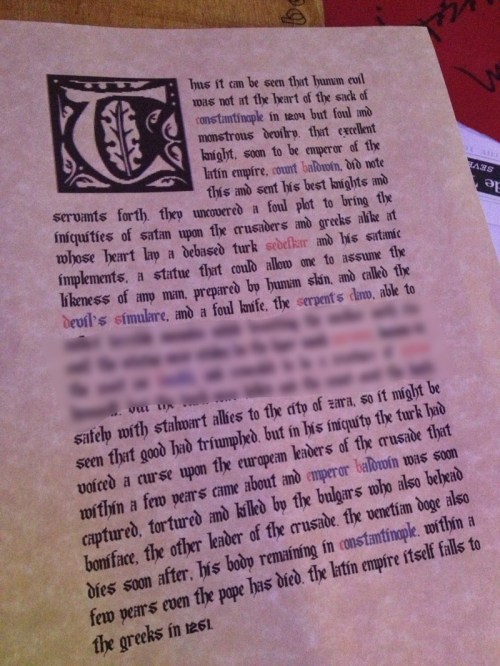 Thus it can be seen that human evil
was not at the heart of the sack of
constantinople in 1204 but foul and
monstrous devilry. that excellent
knight, soon to be emperor of the
latin empire, count baldwin, did note
this and sent his best knights and
servants forth. they uncovered a foul plot to bring the
iniquities of satan upon the crusaders and greeks alike at
whose heart lay a debased turk sedefkar and his satanic
implements, a statue that could allow one to assume the
likeness of any man, prepared by human skin, and called the
devil's simulare, and a foul knife, the serpent's claw, able to
safely with stalwart allies to the city of zara, so it might be
seen that good had triumphed. but in his iniquity the turk had
voiced a curse upon the european leaders of the crusade that
within a few years came about and emperor baldwin was soon
captured, tortured and killed by the bulgars who also behead
boniface, the other leader of the crusade. the venetian doge also
dies soon after, his body remaining in constantinople. within a
few years even the pope has died. the latin empire itself falls to
the greeks in 1261.